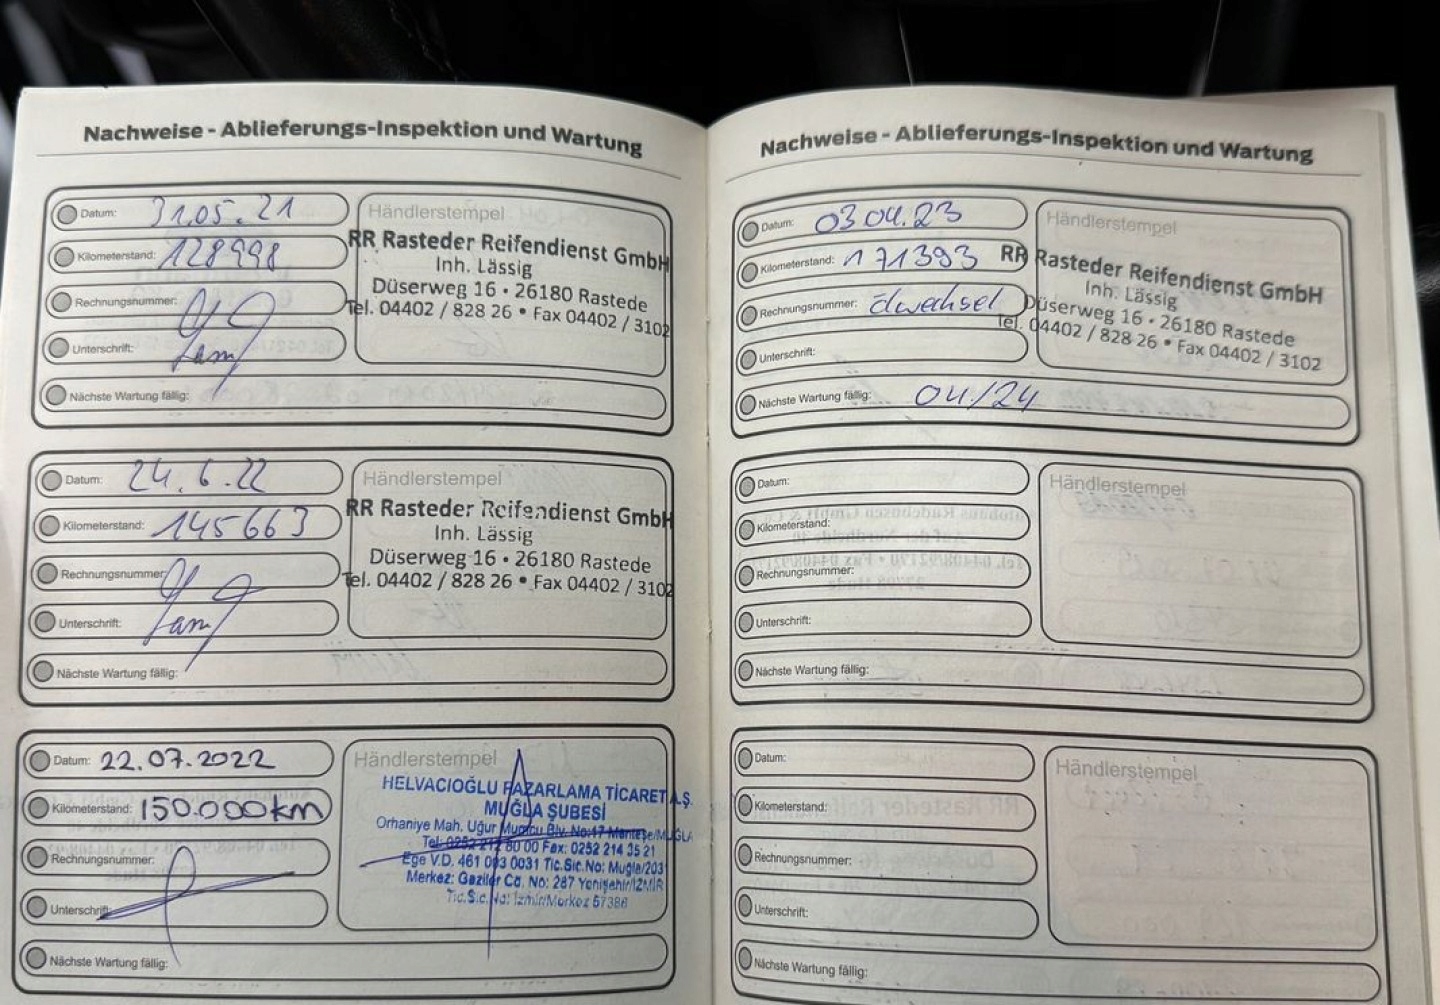 Nachweise - Ablieferungs-Inspektion und Wartung
Datum: 31.05.21
Kilometerstand: 128998
Rechnungsnummer:
Unterschrift:
Nächste Wartung fällig:
Händlerstempel
RR Rasteder Reifendienst GmbH
Inh. Lässig
Düserweg 16 • 26180 Rastede
Tel. 04402 / 828 26 • Fax 04402 / 3102
Datum: 24.6.22
Kilometerstand: 145663
Rechnungsnummer:
Unterschrift:
Nächste Wartung fällig:
Händlerstempel
RR Rasteder Reifendienst GmbH
Inh. Lässig
Düserweg 16 • 26180 Rastede
Tel. 04402 / 828 26 • Fax 04402 / 3102
Datum: 22.07.2022
Kilometerstand: 150.000km
Rechnungsnummer:
Unterschrift:
Nächste Wartung fällig:
Händlerstempel
HELVACIOĞLU PAZARLAMA TİCARET A.Ş.
MUĞLA ŞUBESİ
Orhaniye Mah. Uğur Mumcu Blv. No:17 Menteşe/MUĞLA
Tel: 0252 212 80 00 Fax: 0252 214 35 21
Ege V.D. 461 003 0031 Tic.Sic.No: Muğla/203
Merkez: Gaziler Cd. No: 287 Yenişehir/İZMİR
Tic.Sic.No: İzmir/Merkez 57386
Nachweise - Ablieferungs-Inspektion und Wartung
Datum: 03 04.23
Kilometerstand: 171393
Rechnungsnummer: ölwechsel
Unterschrift:
Nächste Wartung fällig: 04/24
Händlerstempel
RR Rasteder Reifendienst GmbH
Inh. Lässig
Düserweg 16 • 26180 Rastede
Tel. 04402 / 828 26 • Fax 04402 / 3102
Datum:
Kilometerstand:
Rechnungsnummer:
Unterschrift:
Nächste Wartung fällig:
Händlerstempel
Datum:
Kilometerstand:
Rechnungsnummer:
Unterschrift:
Nächste Wartung fällig:
Händlerstempel